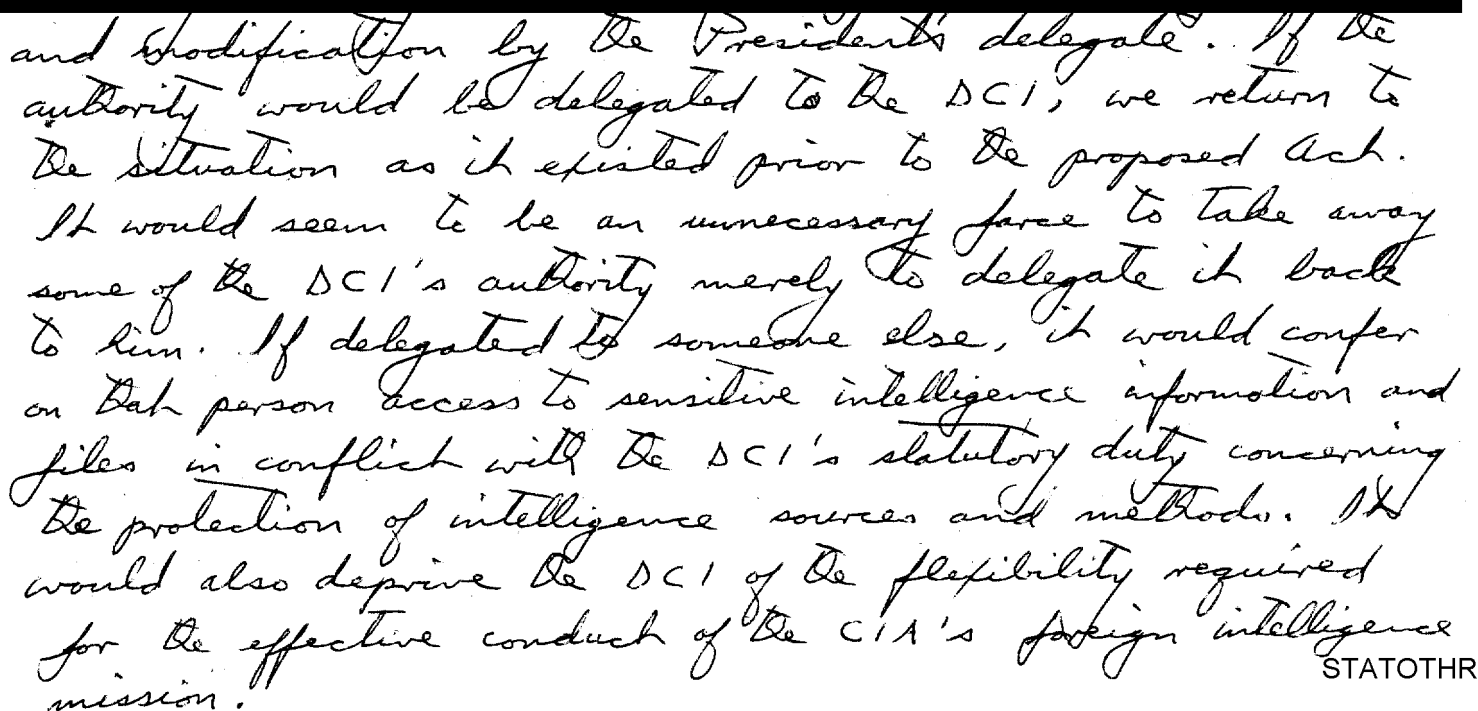 and modification by the President's delegate. If the
authority would be delegated to the DCI, we return to
the situation as it existed prior to the proposed Act.
It would seem to be an unnecessary farce to take away
some of the DCI's authority merely to delegate it back
to him. If delegated to someone else, it would confer
on that person access to sensitive intelligence information and
files in conflict with the DCI's statutory duty concerning
the protection of intelligence sources and methods. It
would also deprive the DCI of the flexibility required
for the effective conduct of the CIA's foreign intelligence
STATOTHR
mission.